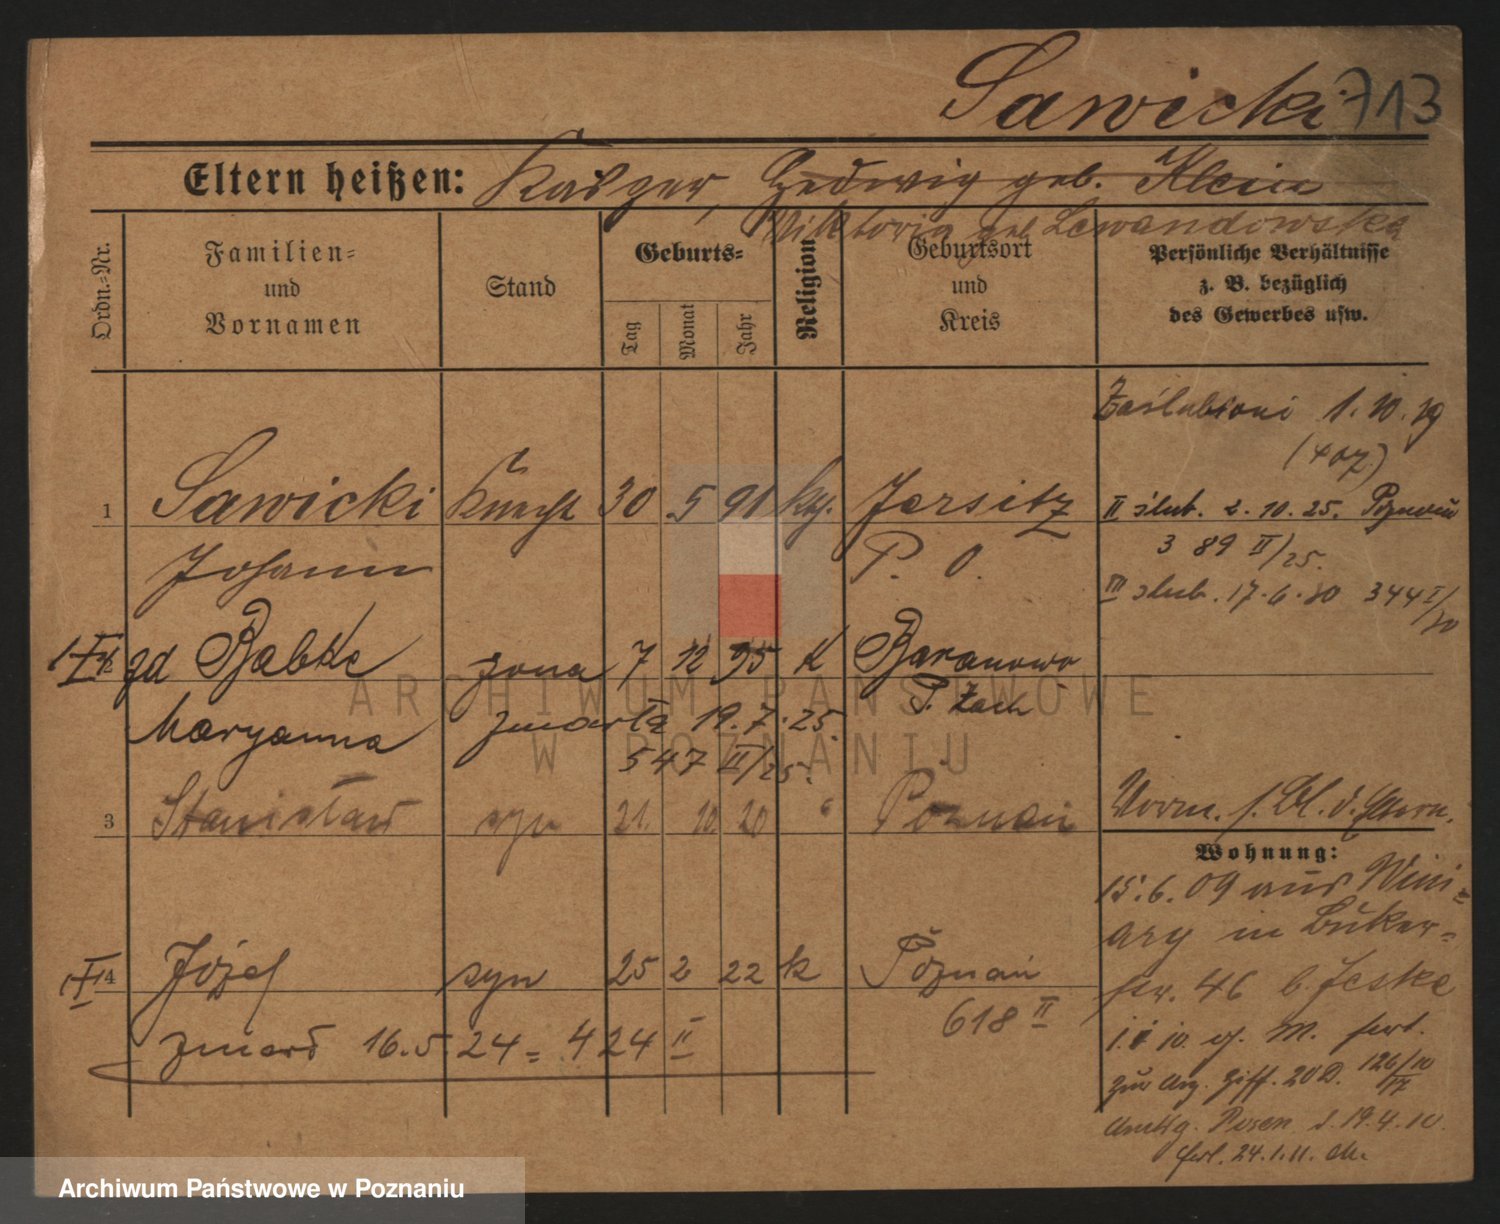 Sawicki 713
Eltern heißen: Kasper, Hedwig geb. Klein
Viktoria geb Lewandowska
Ordn.=Nr.
Familien=
und
Vornamen
Stand
Geburts=
Tag
Monat
Jahr
Religion
Geburtsort
und
Kreis
Persönliche Verhältnisse
z. B. bezüglich
des Gewerbes usw.
Zaślubioni 1. 10. 19
(407)
1 Sawicki Knecht 30 5 91 kth. Jersitz
II ślub. 2. 10. 25. Poznań
Johann P. O.
3 89 II/25.
III ślub. 17. 6. 30 344 I/30
gd Babke żona 7 12 95 K Baranowo
Maryanna zmarła 19. 7. 25. P. Zach
547 II/25.
3 Stanisław syn 21. 10. 20 " Poznań
Vorm. s. Bl. d. Eltern.
Wohnung:
15. 6. 09 aus Wini=
ary in Buker=
str. 46 b. Jeske
4 Józef syn 25 2 22 k Poznań
618 II
zmarł 16. 5. 24 = 424 II
zur Anz. Ziff. 20 D. 126/10
Posen d. 19. 4. 10.
24. 1. 11.
ARCHIWUM PAŃSTWOWE
W POZNANIU
Archiwum Państwowe w Poznaniu